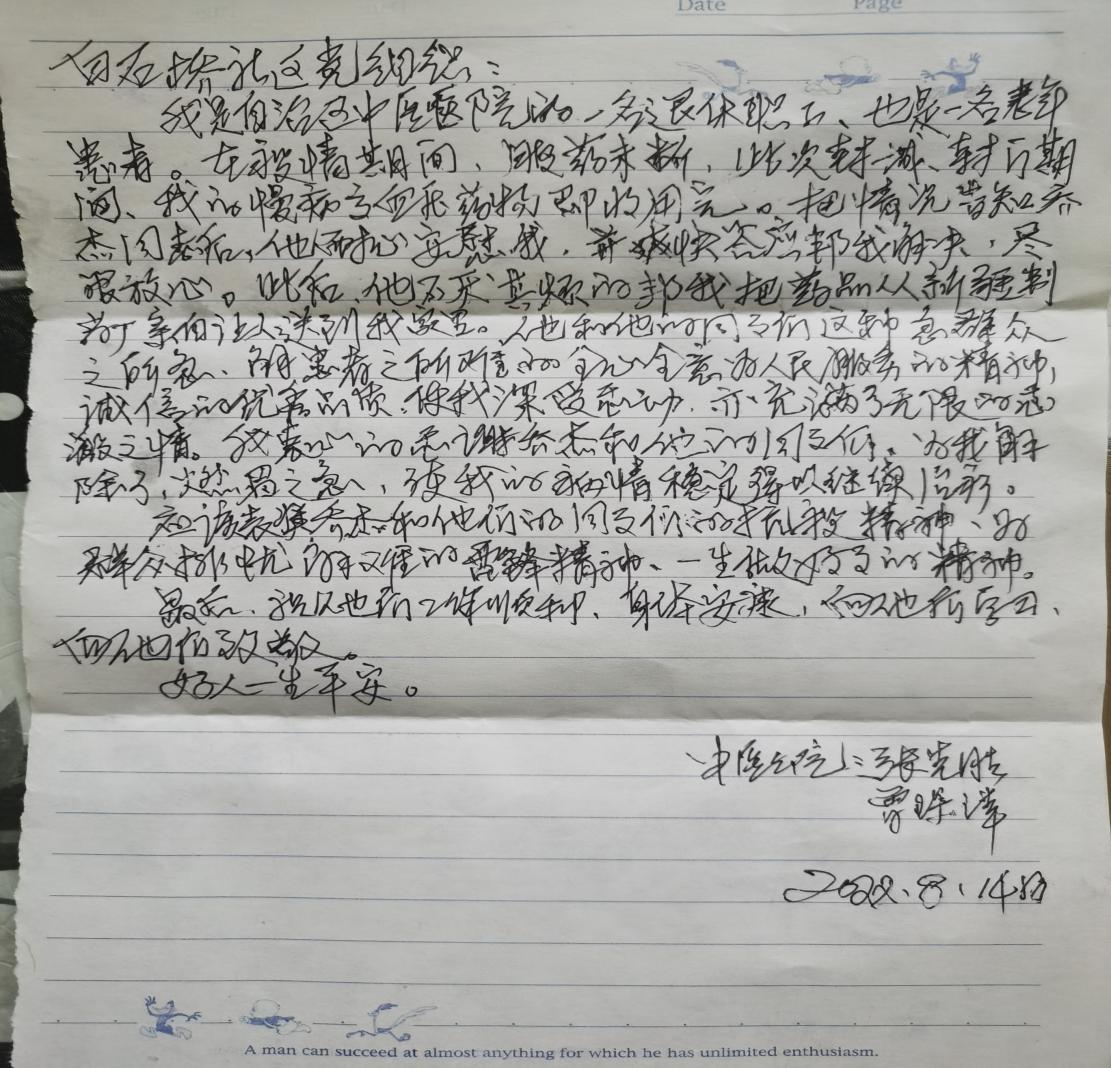 Date Page
白石桥社区党组织：
我是自治区中医医院的一名退休职工、也是一名老年
患者。在疫情期间，服药未断，此次封城、封门期
间、我的慢病高血压药物即将用完。把情况告知乔
杰同志后，他耐心安慰我，并爽快答应帮我解决，尽
管放心。此后、他不厌其烦的帮我把药品从新疆
亲自让人送到我家里。他和他的同事们这种急群众
之所急、解患者之所难的全心全意为人民服务的精神，
诚信的优秀品质、使我深受感动，亦充满了无限的感
激之情。我衷心的感谢乔杰和他的同事们、为我解
除了燃眉之急，使我的病情稳定得以继续治疗。
应该表彰乔杰和他们的同事们的抗疫精神、为
群众排忧解难的雷锋精神、一生做好事的精神。
最后、祝他们工作顺利、身体安康，向他们学习、
向他们致敬。
好人一生平安。
中医医院：张光胜
曹
2022.8.14
A man can succeed at almost anything for which he has unlimited enthusiasm.